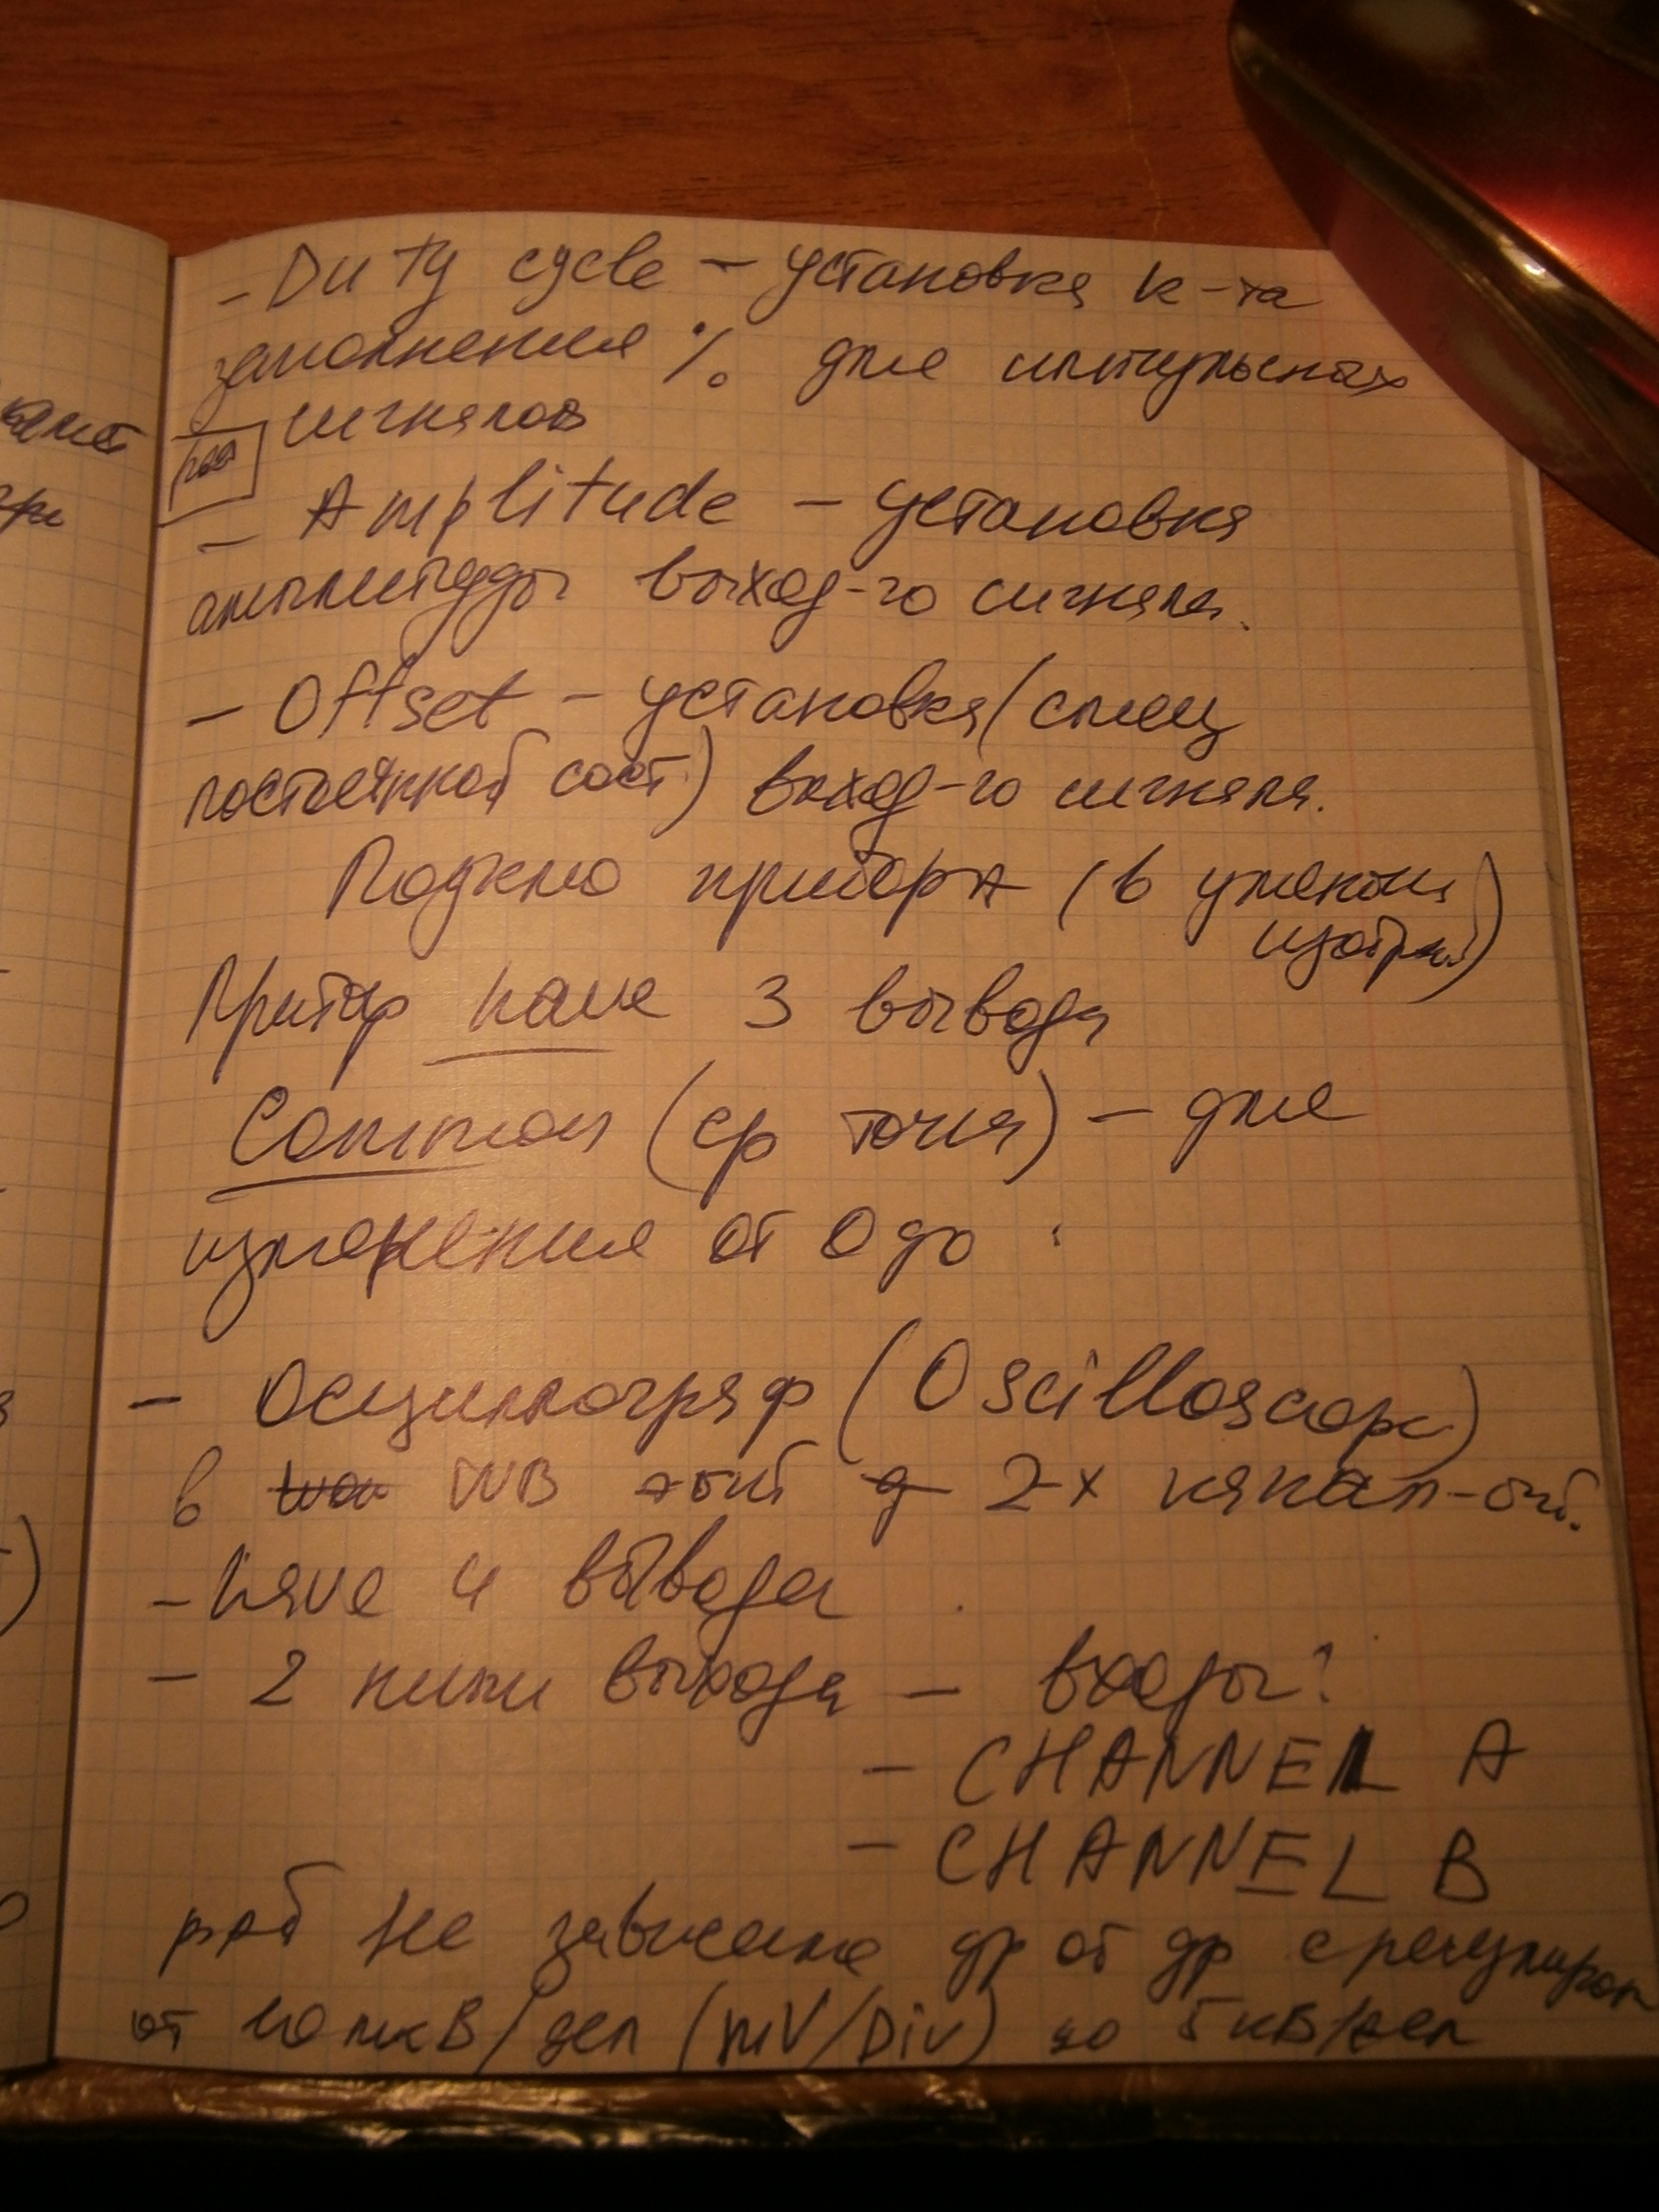 - Duty cycle - установка к-та
заполнения % для импульсных
сигналов
- Amplitude - установка
амплитуды выход-го сигнала.
- Offset - установка (смещ
постоянной сост) выход-го сигнала.
Подклю прибора (в уменьш
изобр)
Прибор 3 вывода
Common (ср точка) - для
измерения от 0 до
- Осциллограф (Oscilloscope)
в WB 2-х канал-ой.
4 вывода
- 2 нижн выхода - входы?
- CHANNEL A
- CHANNEL B
раб не зависимо др от др с регулиров
от 10 мкВ/дел (mV/Div) до 5 кВ/дел